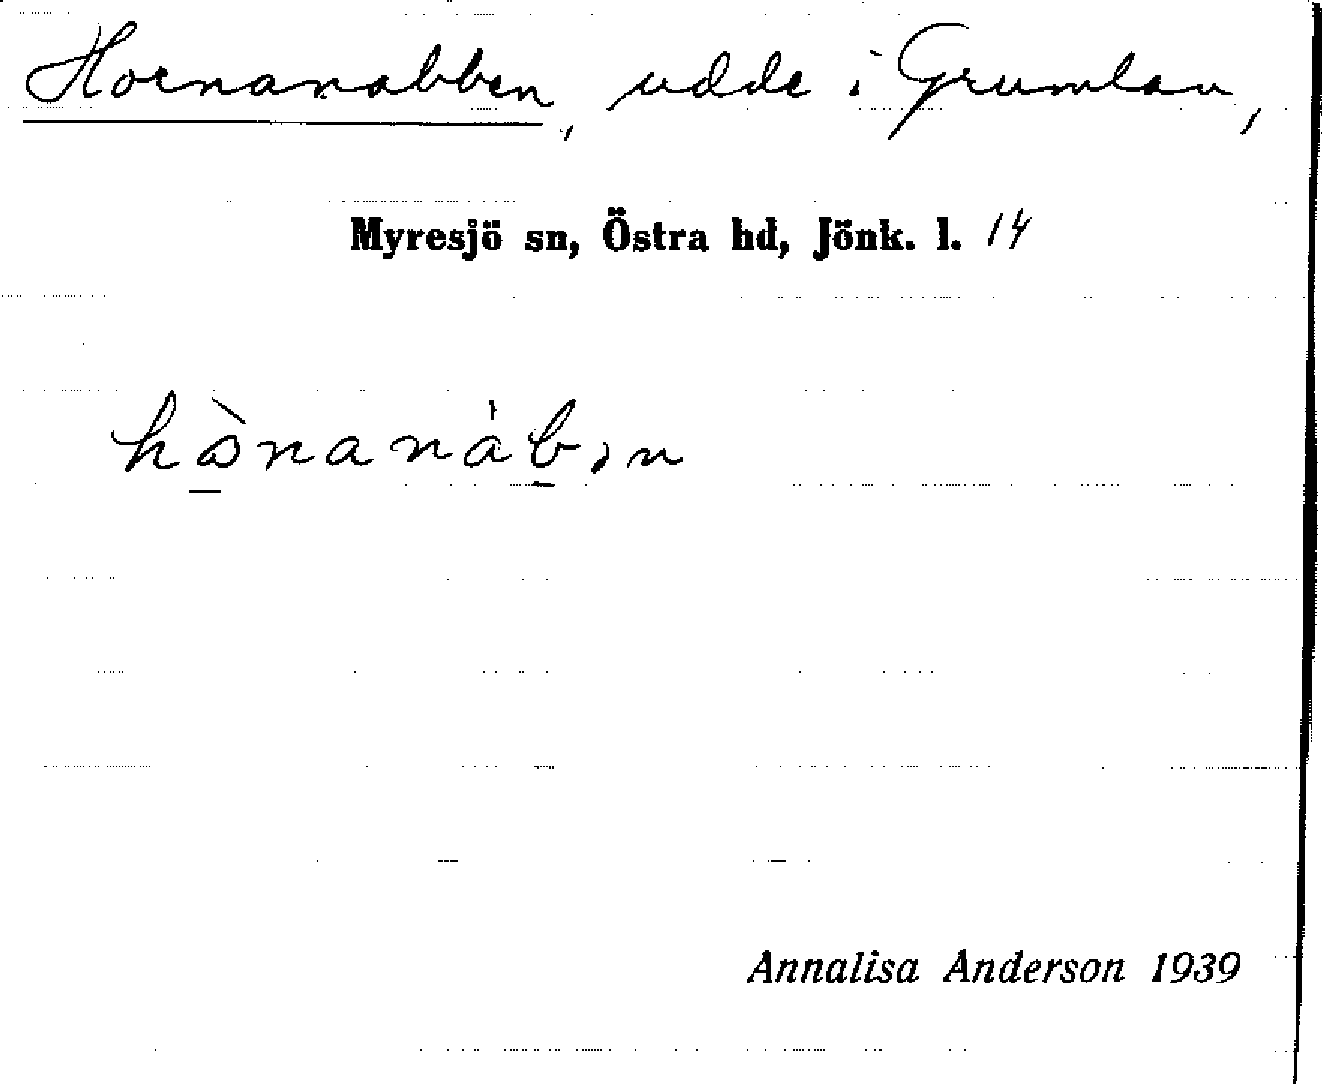 Hornanabben, udde i Grumlan,
Myresjö sn, Östra hd, Jönk. l. 14
hànanábın
Annalisa Anderson 1939